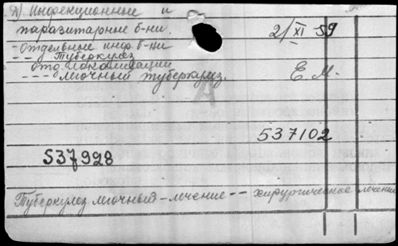 л) Инфекционные и
паразитарные б-ни.
- Отдельные инф б-ни
-- Туберкулез
отд локализации
---- легочный туберкулез.
2/XI 59
Е.М.
537102
537928
Туберкулез легочный - лечение -- хирургическое лечение